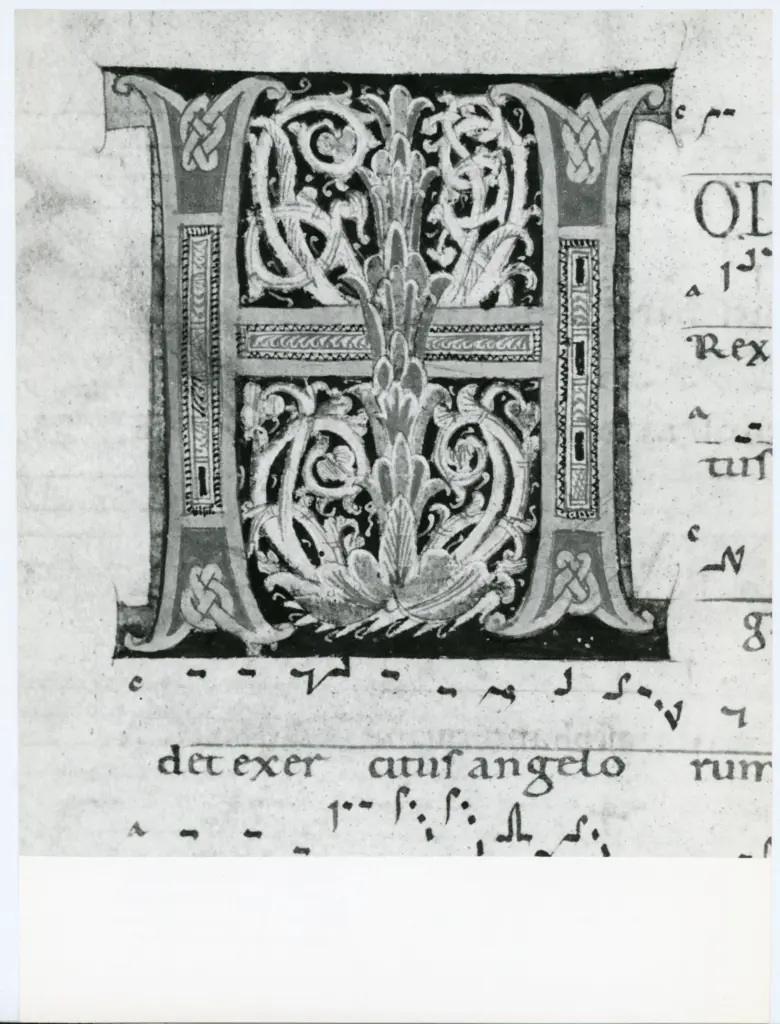 H
OD
Rex
tuſ
g
det exer cituſ angelo rum